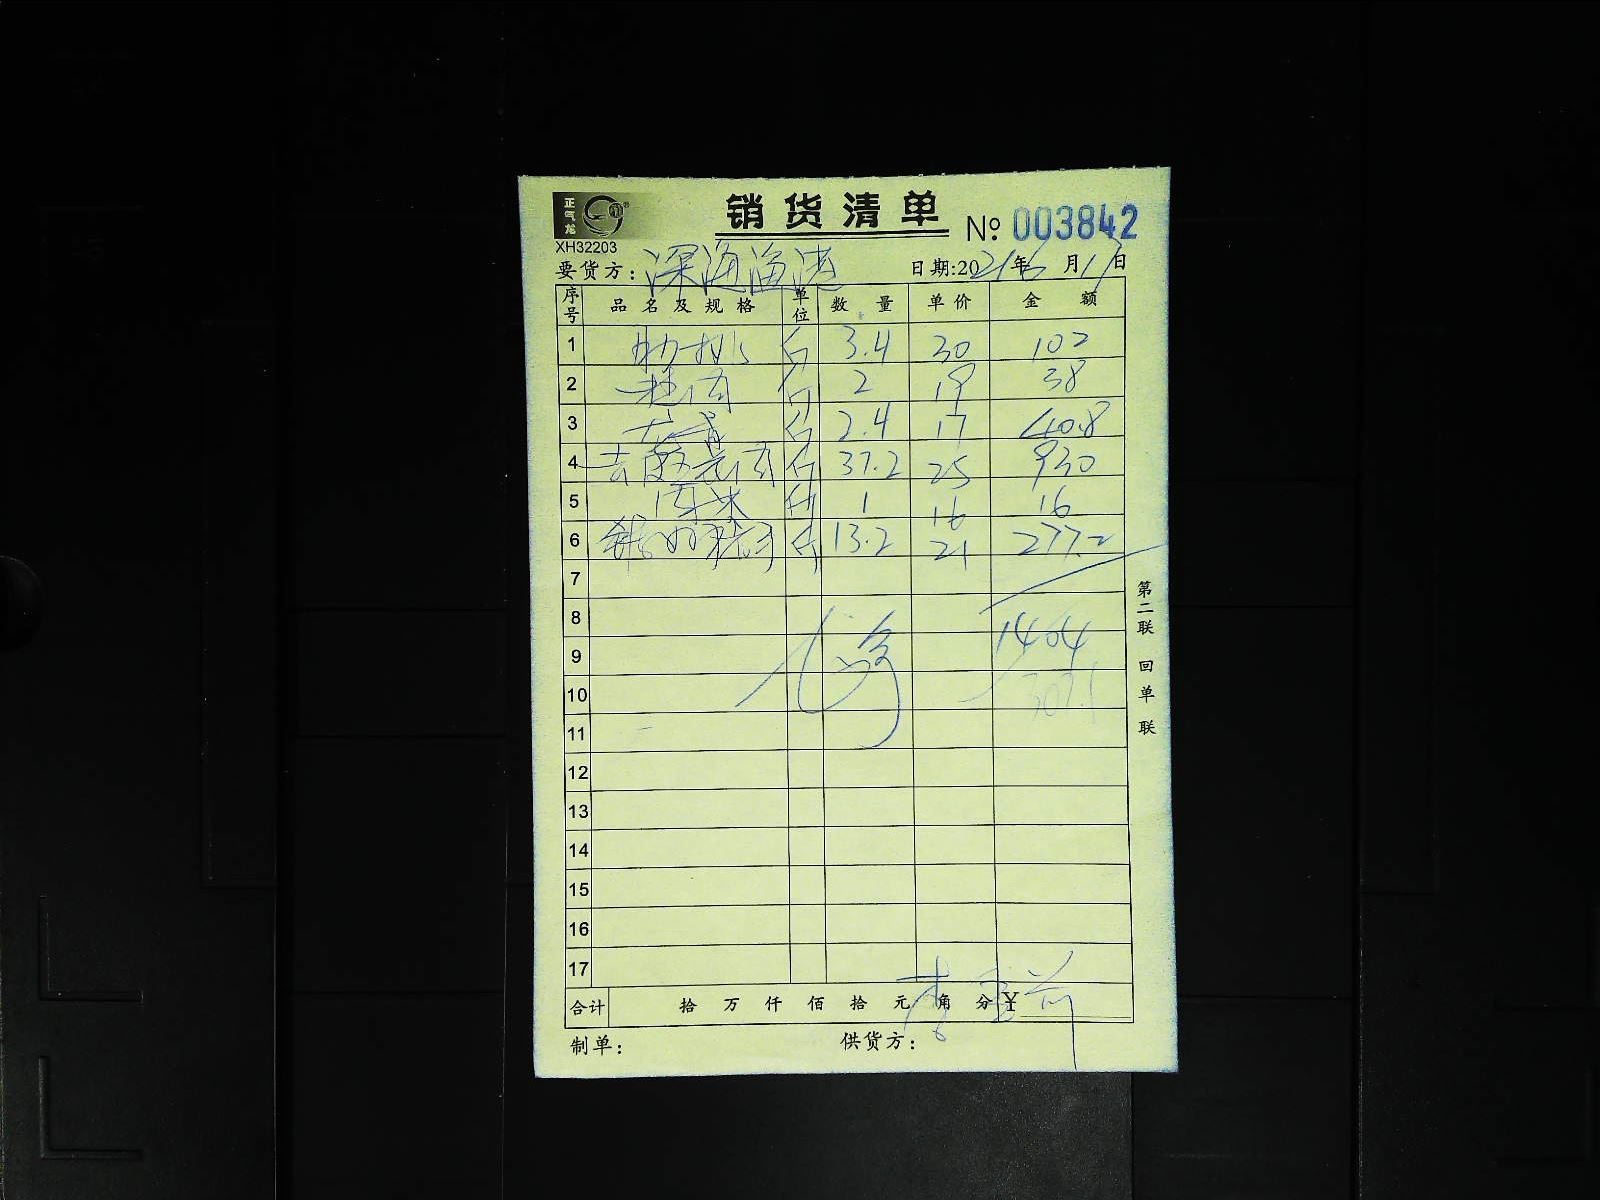 正气龙
销货清单
№ 003842
XH32203
要货方: 深海渔港 日期:2021年6月17日
序号 品名及规格 单位 数量 单价 金额
1 肋排 斤 3.4 30 102
2 斤 2 19 38
3 斤 2.4 17 40.8
4 斤 37.2 25 930
5 1 16 16
6 斤 13.2 21 277.2
7
8
9 1404
10
11
12
13
14
15
16
17
合计 拾 万 仟 佰 拾 元 角 分 ¥
制单: 供货方:
第二联 回单联